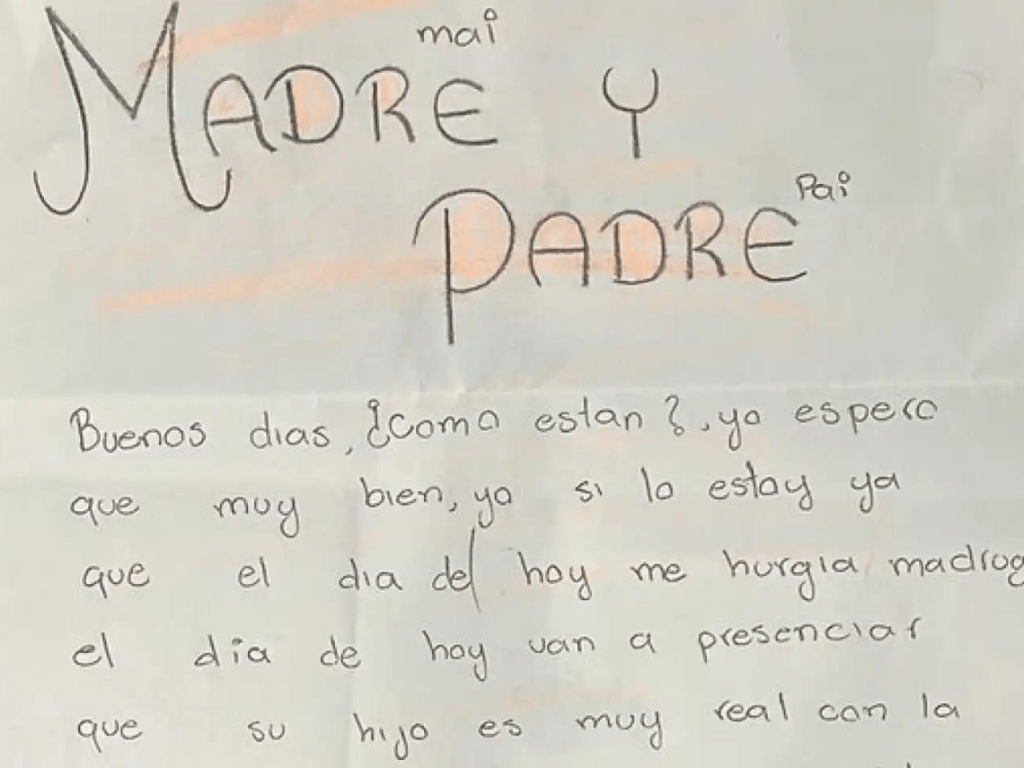 mai
MADRE Y
Pai
PADRE
Buenos dias, ¿Como estan?, yo espero
que muy bien, yo si lo estoy ya
que el dia del hoy me hurgia madrug
el dia de hoy van a presenciar
que su hijo es muy real con la